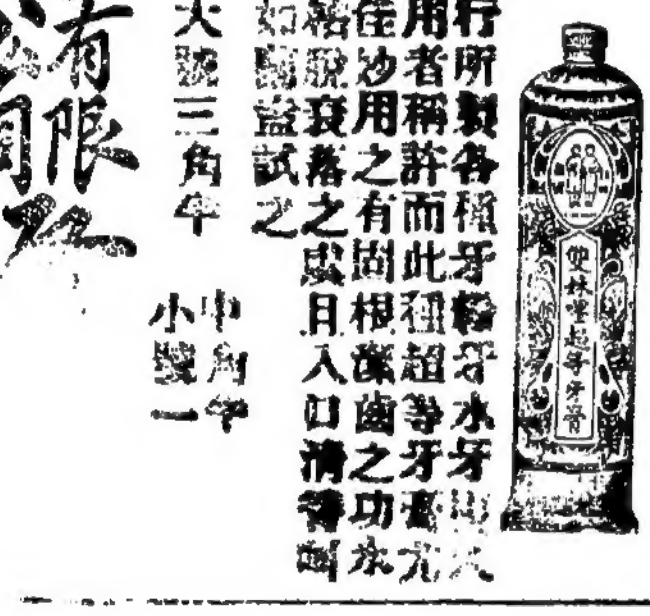 雙妹嘜超等牙膏
行所製各種牙粉牙水牙
用者稱許而此種超等牙膏尤
佳妙用之有固根潔齒之功永
脫衰落之患且入口清
盍試之
大號三角半
中角半
小號一
有限